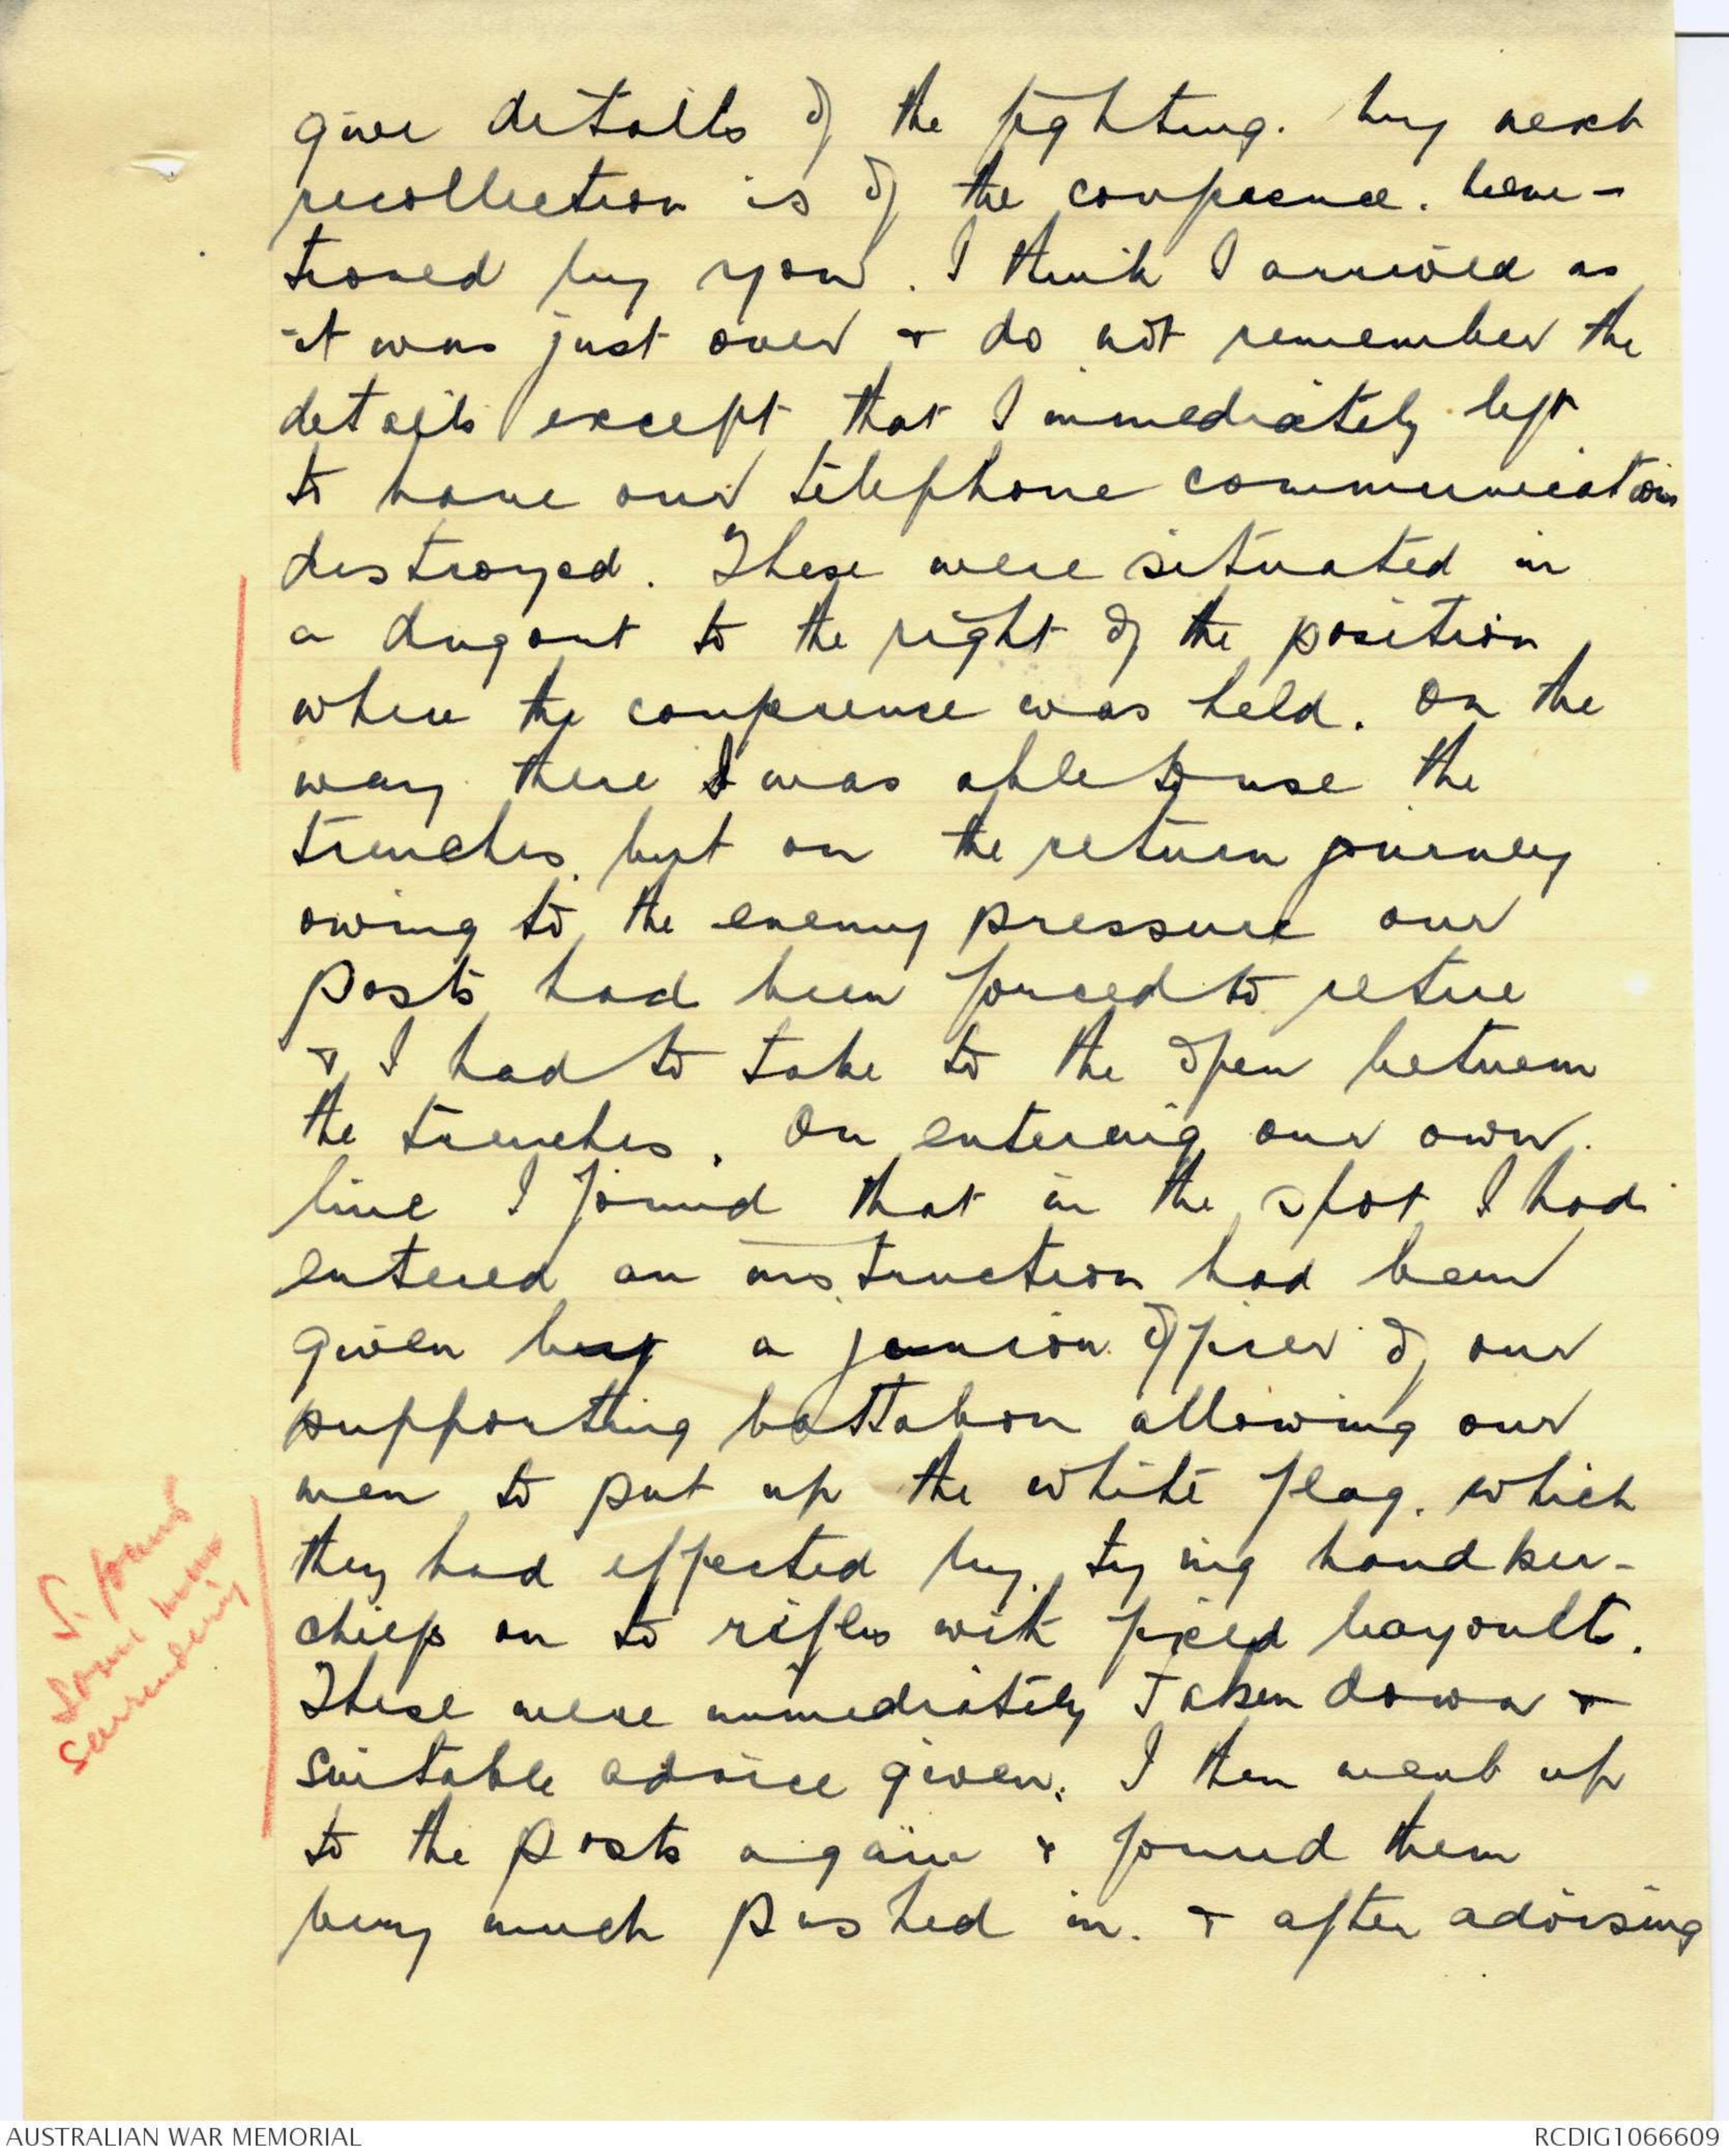 give details of the fighting. My next
recollection is of the conference. men-
tioned by you. I think I arrived as
it was just over & do not remember the
details except that I immediately left
to have our telephone communications
destroyed. These were situated in
a dugout to the right of the position
where the conference was held. On the
way there I was able to use the
trenches but on the return journey
owing to the enemy pressure our
posts had been forced to retire
& I had to take to the open between
the trenches. On entering our own
line I found that in the spot I had
entered an instruction had been
given by a junior officer of our
supporting battalion allowing our
men to put up the white flag. which
they had effected by tying handker-
chiefs on to rifles with fixed bayonets.
These were immediately taken down &
suitable advice given. I then went up
to the posts again & found them
being much pushed in. & after advising
S. found
some men
surrendering
AUSTRALIAN WAR MEMORIAL
RCDIG1066609